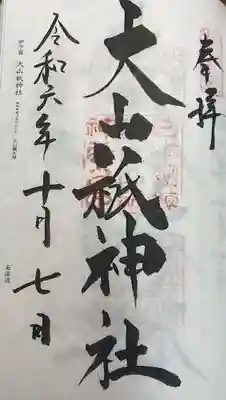 奉拝
大山祇神社
令和六年十月七日
伊予国 大山祇神社